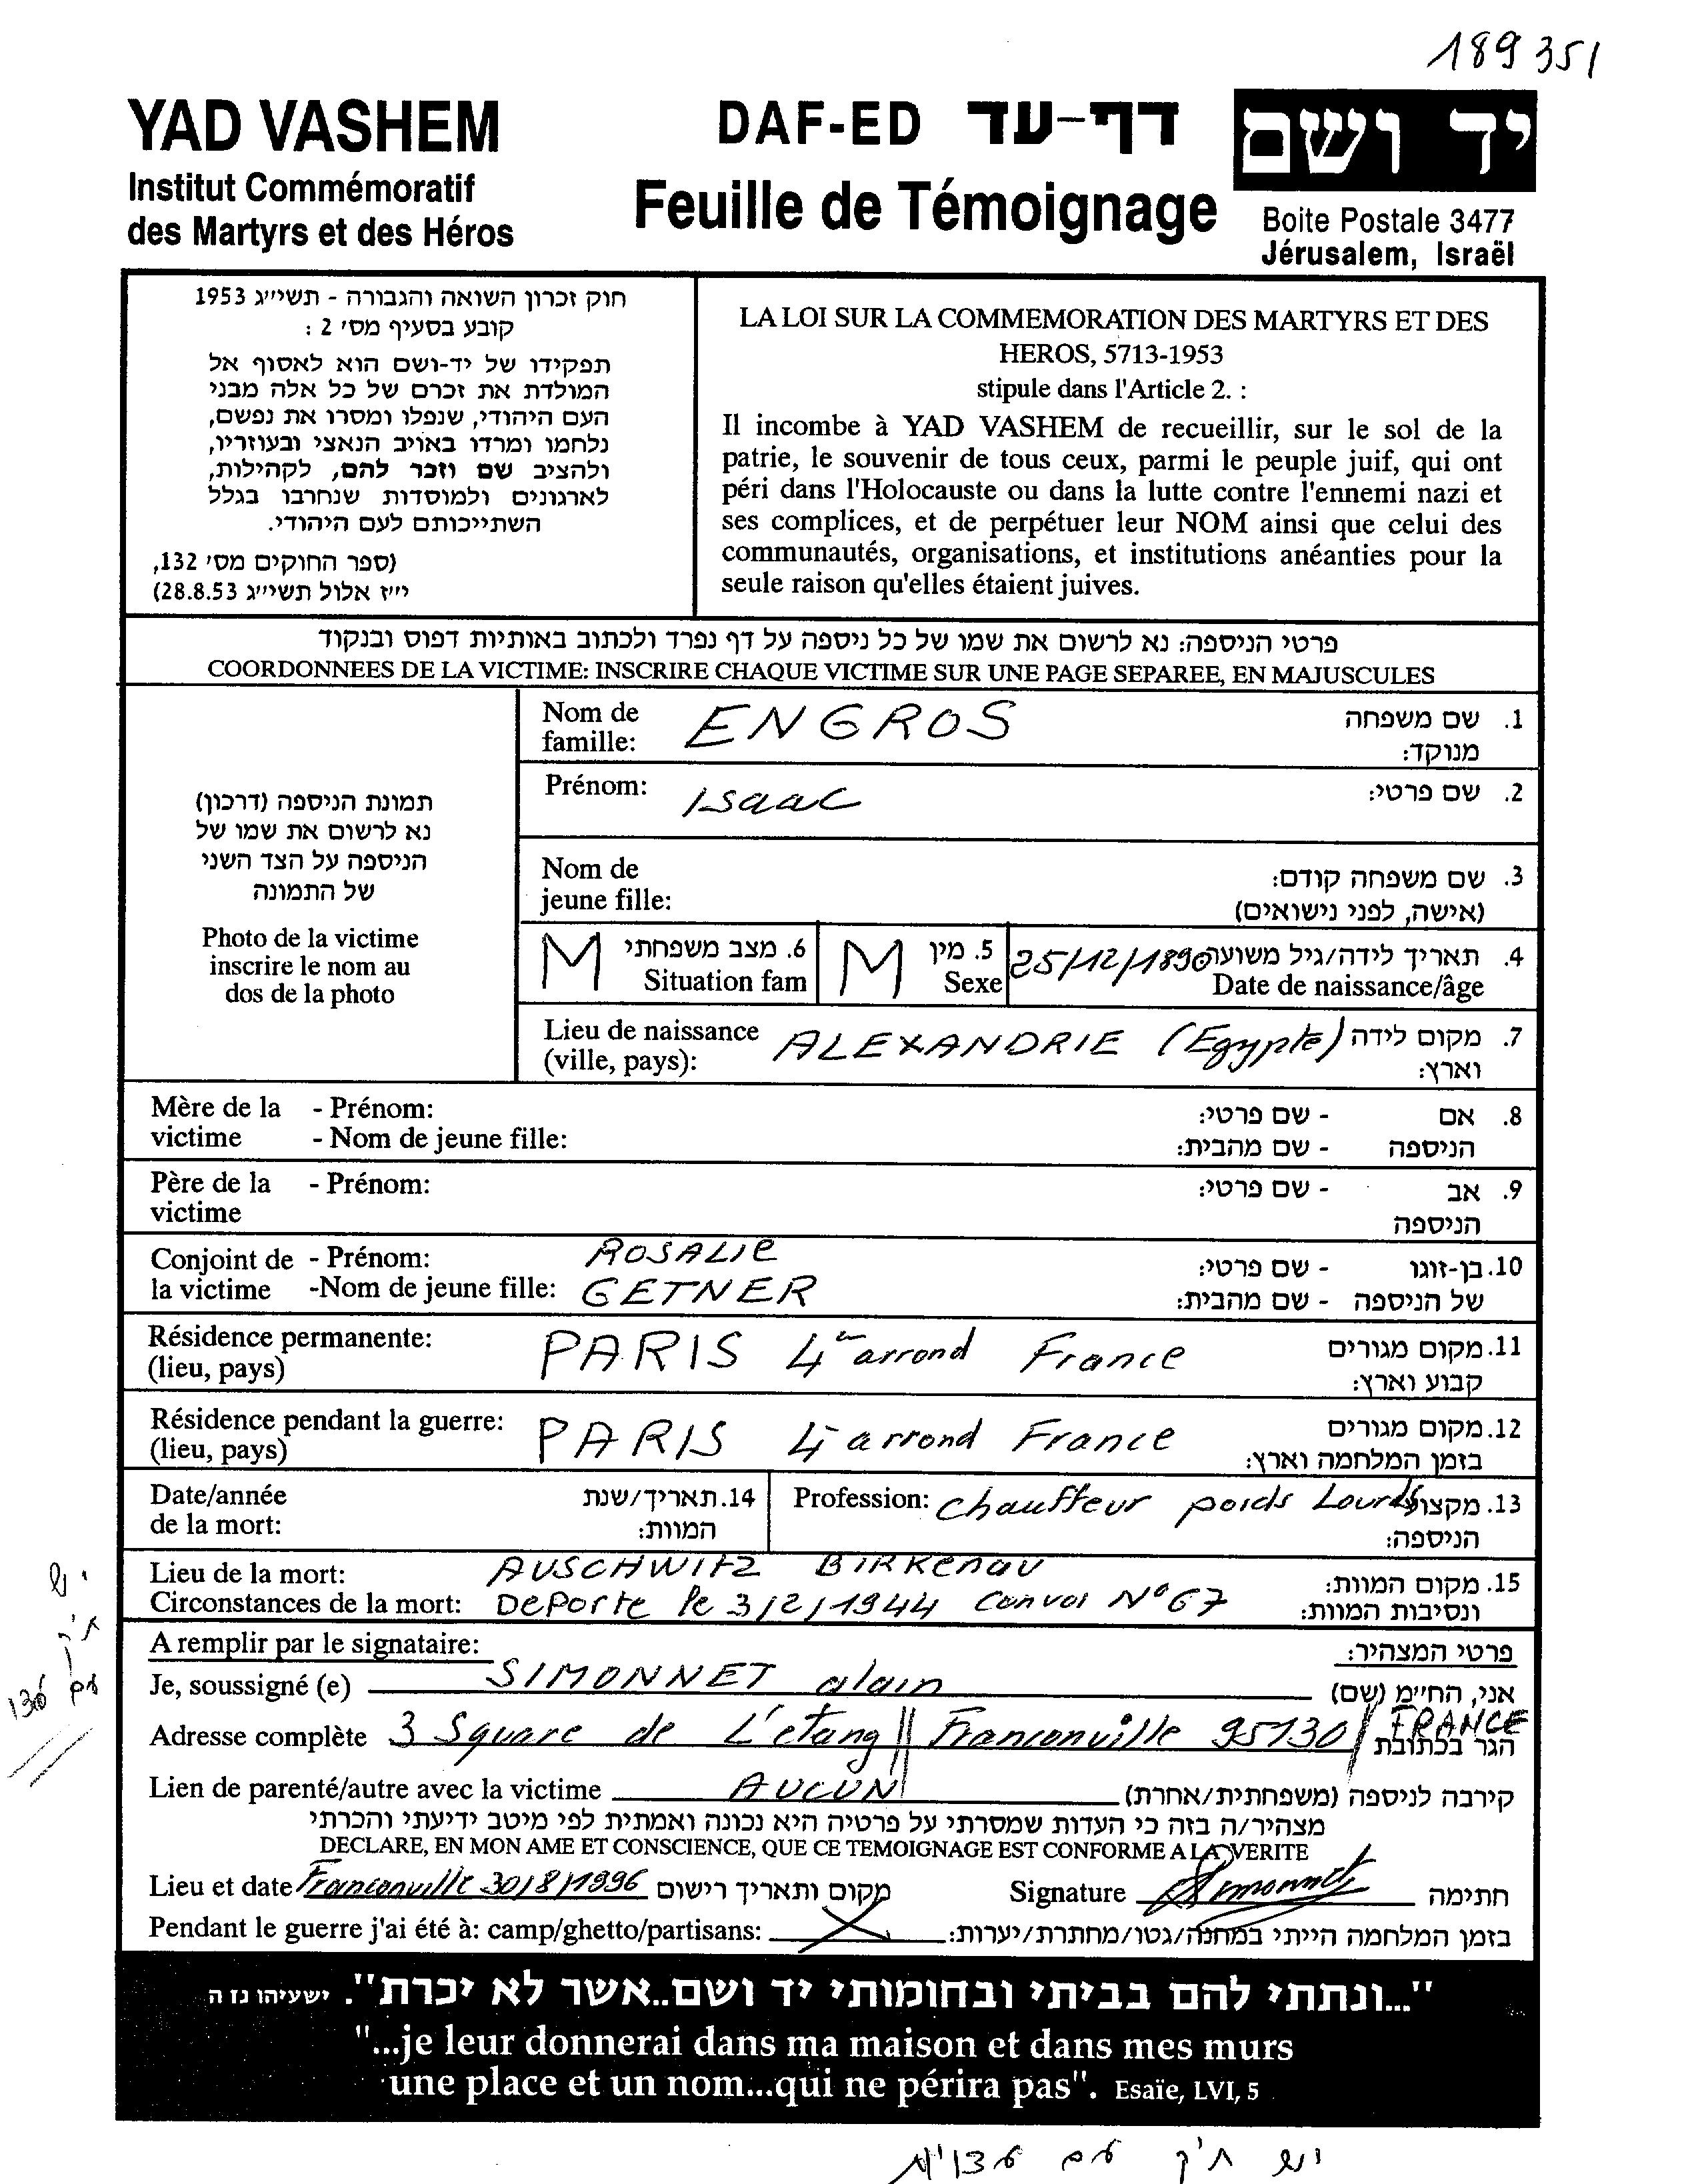 189351
YAD VASHEM
Institut Commémoratif
des Martyrs et des Héros
DAF-ED דף-עד
Feuille de Témoignage
יד ושם
Boite Postale 3477
Jérusalem, Israël
חוק זכרון השואה והגבורה - תשי״ג 1953
קובע בסעיף מס׳ 2 :
תפקידו של יד-ושם הוא לאסוף אל
המולדת את זכרם של כל אלה מבני
העם היהודי, שנפלו ומסרו את נפשם,
נלחמו ומרדו באויב הנאצי ובעוזריו,
ולהציב שם וזכר להם, לקהילות,
לארגונים ולמוסדות שנחרבו בגלל
השתייכותם לעם היהודי.
(ספר החוקים מס׳ 132,
י״ז אלול תשי״ג 28.8.53)
LA LOI SUR LA COMMEMORATION DES MARTYRS ET DES
HEROS, 5713-1953
stipule dans l'Article 2. :
Il incombe à YAD VASHEM de recueillir, sur le sol de la
patrie, le souvenir de tous ceux, parmi le peuple juif, qui ont
péri dans l'Holocauste ou dans la lutte contre l'ennemi nazi et
ses complices, et de perpétuer leur NOM ainsi que celui des
communautés, organisations, et institutions anéanties pour la
seule raison qu'elles étaient juives.
פרטי הניספה: נא לרשום את שמו של כל ניספה על דף נפרד ולכתוב באותיות דפוס ובנקוד
COORDONNEES DE LA VICTIME: INSCRIRE CHAQUE VICTIME SUR UNE PAGE SEPAREE, EN MAJUSCULES
תמונת הניספה (דרכון)
נא לרשום את שמו של
הניספה על הצד השני
של התמונה
Photo de la victime
inscrire le nom au
dos de la photo
Nom de famille: ENGROS 1. שם משפחה
מנוקד:
Prénom: Isaac 2. שם פרטי:
Nom de
jeune fille: 3. שם משפחה קודם:
(אישה, לפני נישואים)
M 6. מצב משפחתי
Situation fam
M 5. מין
Sexe
25/12/1890 4. תאריך לידה/גיל משוער
Date de naissance/âge
Lieu de naissance
(ville, pays): ALEXANDRIE (Egypte) 7. מקום לידה
וארץ:
Mère de la - Prénom: - שם פרטי: 8. אם
victime - Nom de jeune fille: - שם מהבית: הניספה
Père de la - Prénom: - שם פרטי: 9. אב
victime הניספה
Conjoint de - Prénom: ROSALIE - שם פרטי: 10. בן-זוגו
la victime -Nom de jeune fille: GETNER - שם מהבית: של הניספה
Résidence permanente: PARIS 4e arrond France 11. מקום מגורים
(lieu, pays) קבוע וארץ:
Résidence pendant la guerre: PARIS 4 arrond France 12. מקום מגורים
(lieu, pays) בזמן המלחמה וארץ:
Date/année 14. תאריך/שנת
de la mort: המוות:
Profession: chauffeur poids Lourds 13. מקצוע
הניספה:
Lieu de la mort: AUSCHWITZ BIRKenau 15. מקום המוות:
Circonstances de la mort: DePorte le 3/2/1944 Convoi N° 67 ונסיבות המוות:
A remplir par le signataire: פרטי המצהיר:
Je, soussigné (e) SIMONNET alain אני, החיימ (שם)
Adresse complète 3 Square de L'etang // Franconville 95130 / FRANCE הגר בכתובת
Lien de parenté/autre avec la victime AUCUN קירבה לניספה (משפחתית/אחרת)
מצהיר/ה בזה כי העדות שמסרתי על פרטיה היא נכונה ואמתית לפי מיטב ידיעתי והכרתי
DECLARE, EN MON AME ET CONSCIENCE, QUE CE TEMOIGNAGE EST CONFORME A LA VERITE
Lieu et date Franconville 30/8/1996 מקום ותאריך רישום Signature Simonnet חתימה
Pendant le guerre j'ai été à: camp/ghetto/partisans: בזמן המלחמה הייתי במחנה/גטו/מחתרת/יערות:
"...ונתתי להם בביתי ובחומותי יד ושם..אשר לא יכרת". ישעיהו נז ה
"...je leur donnerai dans ma maison et dans mes murs
une place et un nom...qui ne périra pas". Esaïe, LVI, 5
יש תיק עם